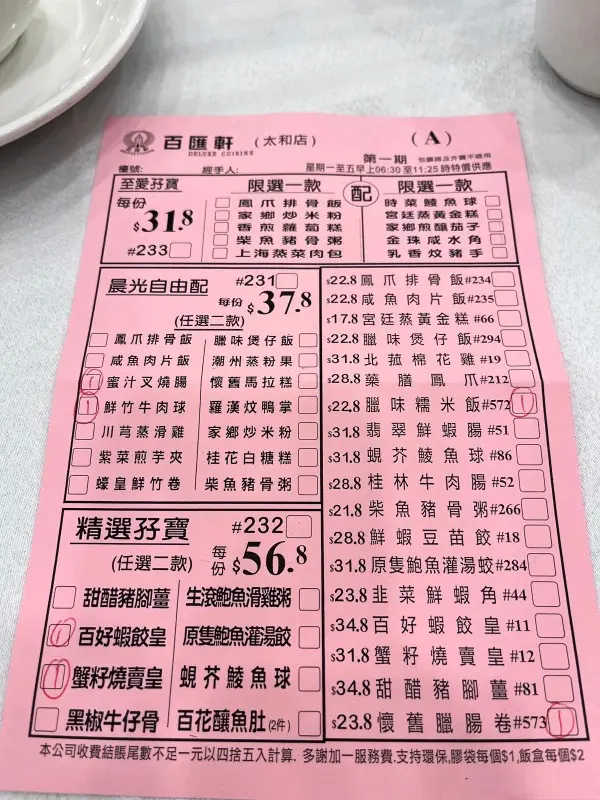 百匯軒 (太和店) (A)
DELUXE CUISINE
第一期 包廳席及外賣不適用
檯號: 經手人: 星期一至五早上06:30至11:25時特價供應
至愛孖寶 限選一款 配 限選一款
每份 $31.8
#233
鳳爪排骨飯 時菜鯪魚球
家鄉炒米粉 宮廷蒸黃金糕
香煎蘿蔔糕 家鄉煎釀茄子
柴魚豬骨粥 金珠咸水角
上海蒸菜肉包 乳香炆豬手
晨光自由配 #231
(任選二款) 每份 $37.8
鳳爪排骨飯 臘味煲仔飯
咸魚肉片飯 潮州蒸粉果
1 蜜汁叉燒腸 懷舊馬拉糕
1 鮮竹牛肉球 羅漢炆鴨掌
川芎蒸滑雞 家鄉炒米粉
紫菜煎芋夾 桂花白糖糕
蠔皇鮮竹卷 柴魚豬骨粥
精選孖寶 #232
(任選二款) 每份 $56.8
甜醋豬腳薑 生滾鮑魚滑雞粥
1 百好蝦餃皇 原隻鮑魚灌湯餃
1 蟹籽燒賣皇 蜆芥鯪魚球
黑椒牛仔骨 百花釀魚肚(2件)
$22.8 鳳爪排骨飯 #234
$22.8 咸魚肉片飯 #235
$17.8 宮廷蒸黃金糕 #66
$22.8 臘味煲仔飯 #294
$31.8 北菰棉花雞 #19
$28.8 藥膳鳳爪 #212
$22.8 臘味糯米飯 #572 1
$31.8 翡翠鮮蝦腸 #51
$31.8 蜆芥鯪魚球 #86
$28.8 桂林牛肉腸 #52
$21.8 柴魚豬骨粥 #266
$28.8 鮮蝦豆苗餃 #18
$31.8 原隻鮑魚灌湯蛟 #284
$23.8 韭菜鮮蝦角 #44
$34.8 百好蝦餃皇 #11
$31.8 蟹籽燒賣皇 #12
$34.8 甜醋豬腳薑 #81
$23.8 懷舊臘腸卷 #573 1
本公司收費結賬尾數不足一元以四捨五入計算. 多謝加一服務費.支持環保,膠袋每個$1,飯盒每個$2